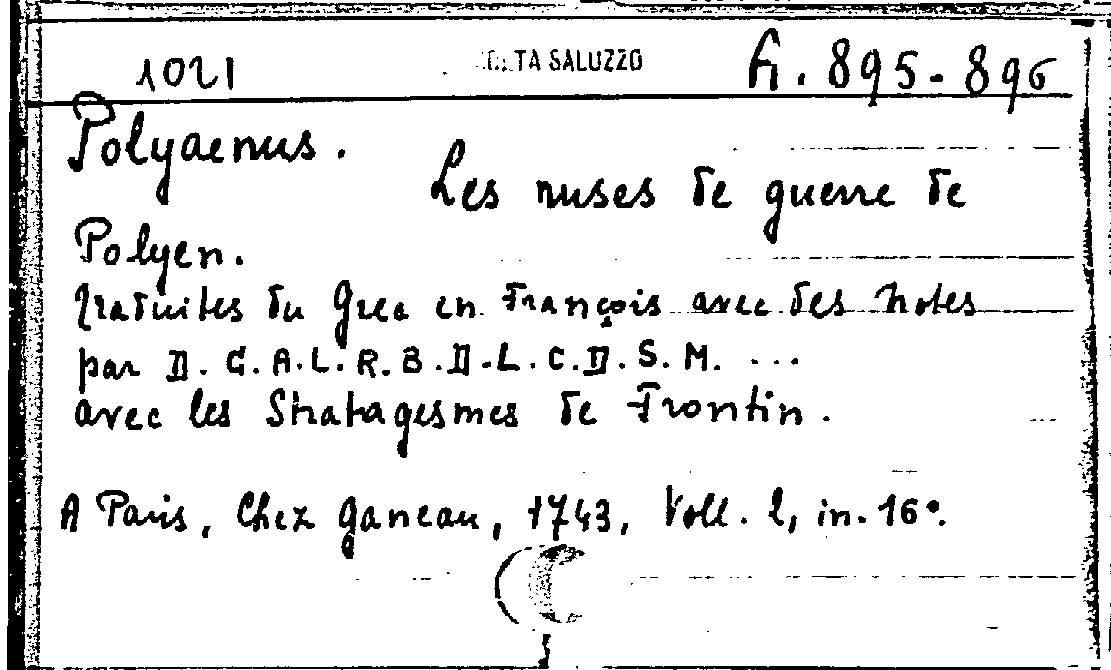 1021 SALUZZO h. 895-896
Polyaenus.
Les ruses de guerre de
Polyen.
traduites du Grec en François avec des notes
par D. G. A. L. R. B. D. L. C. D. S. M. ...
avec les Stratagesmes de Frontin.
A Paris, Chez Ganeau, 1743, Voll. 2, in. 16°.